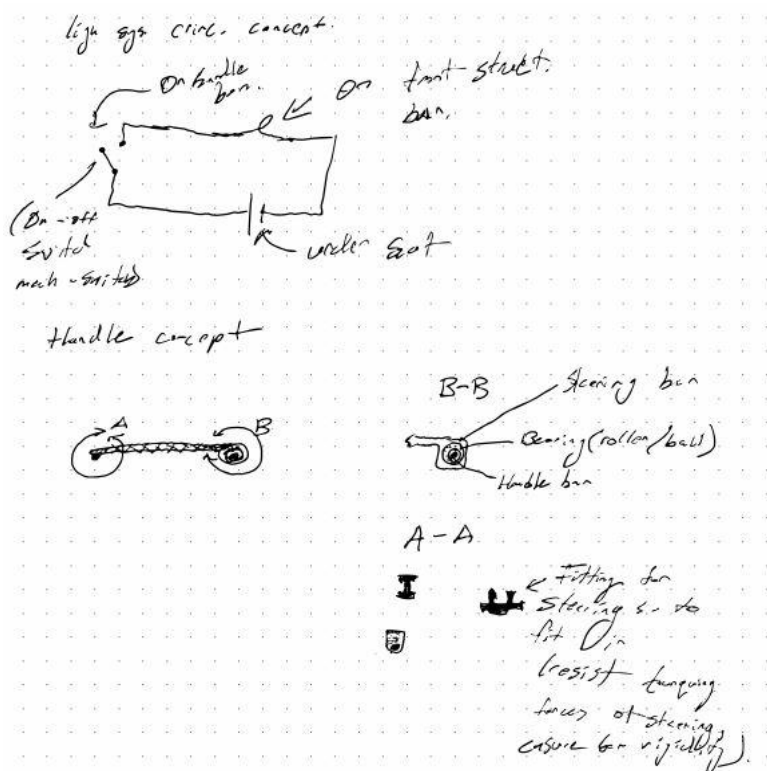 sys circ. concept.
On handle
bar.
On front street.
bar.
(On-off
switch
mech-switch)
under seat
Handle concept
A
B
B-B
Steering bar
Bearing (roller/ball)
Handle bar
A-A
Fitting for
steering to
fit in
(resist torquing
forces of steering,
ensure bar rigidity).